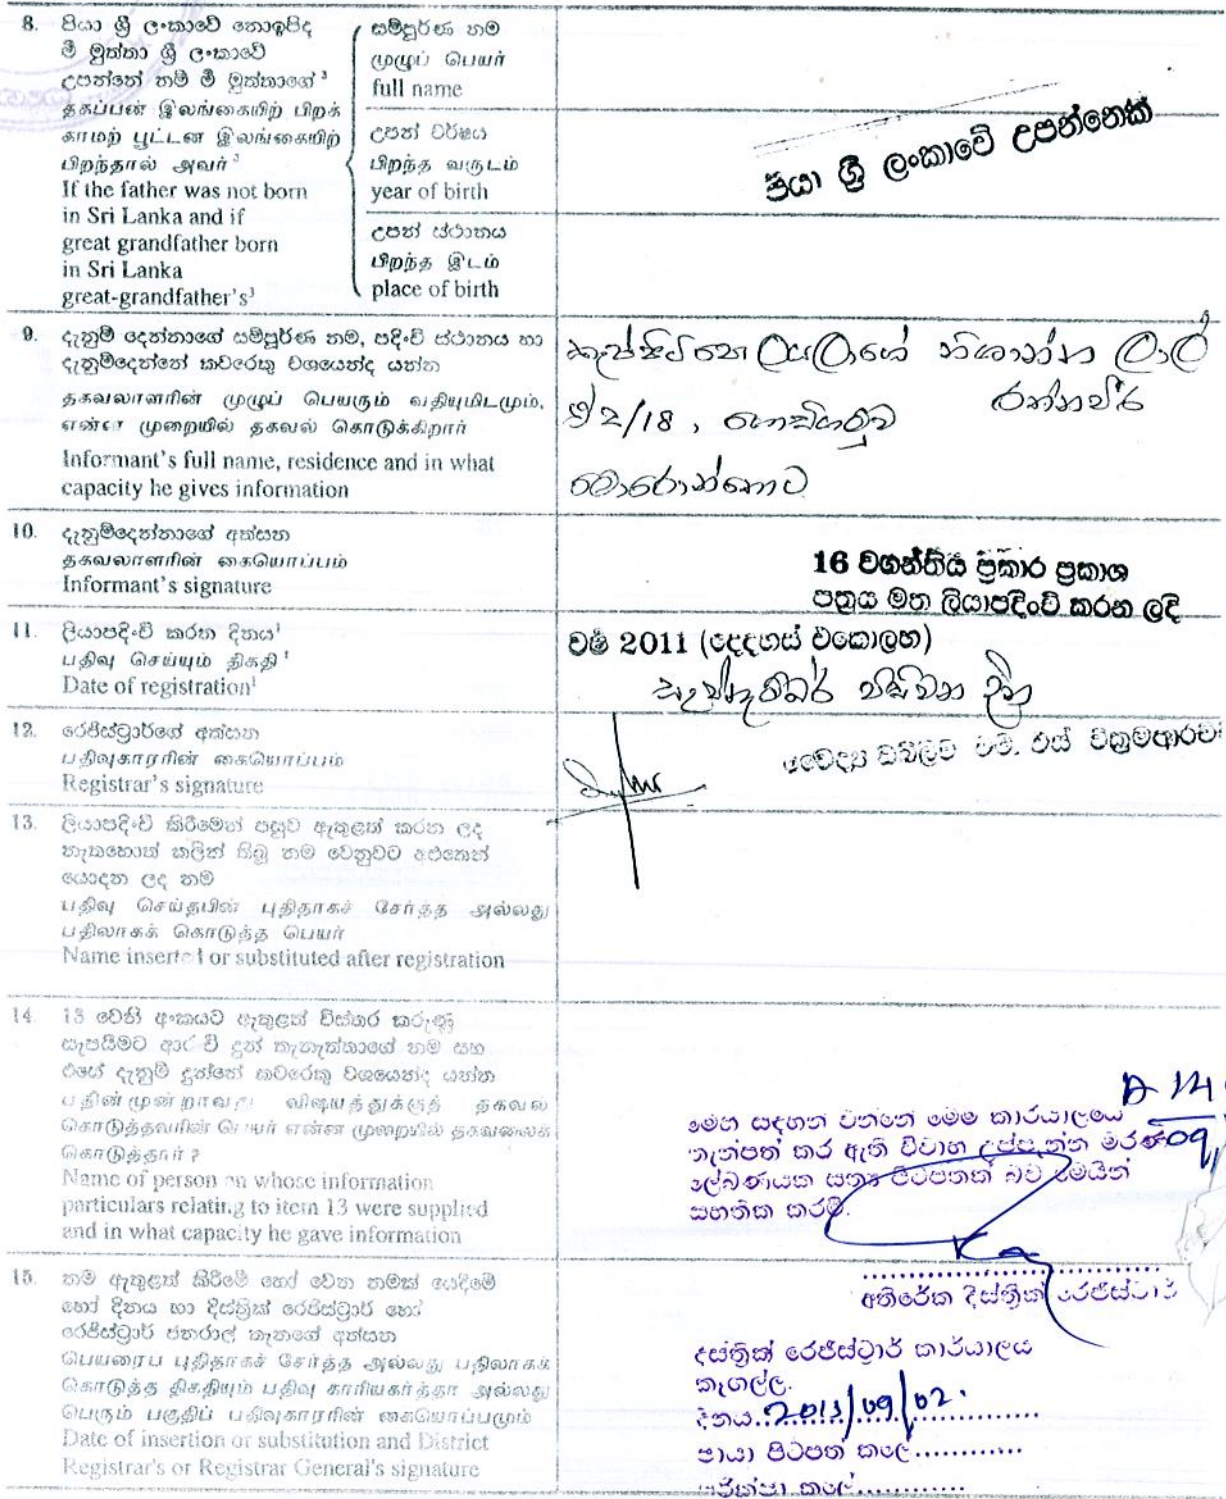 8. පියා ශ්‍රී ලංකාවේ නොඉපිද
මී මුත්තා ශ්‍රී ලංකාවේ
උපන්නේ නම් මී මුත්තාගේ ³
தகப்பன் இலங்கையிற் பிறக்
காமற் பூட்டன் இலங்கையிற்
பிறந்தால் அவர் ³
If the father was not born
in Sri Lanka and if
great grandfather born
in Sri Lanka
great-grandfather's³
සම්පූර්ණ නම
முழுப் பெயர்
full name
උපන් වර්ෂය
பிறந்த வருடம்
year of birth
උපන් ස්ථානය
பிறந்த இடம்
place of birth
පියා ශ්‍රී ලංකාවේ උපන්නෙක්
9. දැනුම් දෙන්නාගේ සම්පූර්ණ නම, පදිංචි ස්ථානය හා
දැනුම්දෙන්නේ කවරෙකු වශයෙන්ද යන්න
தகவலாளரின் முழுப் பெயரும் வதியுமிடமும்,
என்ன முறையில் தகவல் கொடுக்கிறார்
Informant's full name, residence and in what
capacity he gives information
නිශාන්ත ලාල්
රත්නවීර
2/18,
මොරොන්තොට
10. දැනුම්දෙන්නාගේ අත්සන
தகவலாளரின் கையொப்பம்
Informant's signature
16 වගන්තිය ප්‍රකාර ප්‍රකාශ
පත්‍රය මත ලියාපදිංචි කරන ලදි
11. ලියාපදිංචි කරන දිනය¹
பதிவு செய்யும் திகதி ¹
Date of registration¹
වර්ෂ 2011 (දෙදහස් එකොලහ)
සැප්තැම්බර් විසිවන දින
12. රෙජිස්ට්‍රාර්ගේ අත්සන
பதிவுகாரரின் கையொப்பம்
Registrar's signature
වෛද්‍ය ඩබ්ලිව් එම්. එස් වික්‍රමආරච්චි
13. ලියාපදිංචි කිරීමෙන් පසුව ඇතුළත් කරන ලද
නැතහොත් කලින් තිබූ නම වෙනුවට අළුතෙන්
යොදන ලද නම
பதிவு செய்தபின் புதிதாகச் சேர்த்த அல்லது
பதிலாகக் கொடுத்த பெயர்
Name inserted or substituted after registration
14. 13 වෙනි අංකයට ඇතුළත් විස්තර කරුණු
සැපයීමට ආරංචි දුන් තැනැත්තාගේ නම සහ
එසේ දැනුම් දුන්නේ කවරෙකු වශයෙන්ද යන්න
பதின்மூன்றாவது விஷயத்துக்குத் தகவல்
கொடுத்தவரின் பெயர் என்ன முறையில் தகவலைக்
கொடுத்தார் ?
Name of person on whose information
particulars relating to item 13 were supplied
and in what capacity he gave information
මෙහි සඳහන් වන්නේ මෙම කාර්යාලයේ
තැන්පත් කර ඇති විවාහ උප්පැන්න මරණ
ලේඛණයක සත්‍ය පිටපතක් බව මෙයින්
සහතික කරමි.
අතිරේක දිස්ත්‍රික් රෙජිස්ට්‍රාර්
15. නම ඇතුළත් කිරීමේ හෝ වෙන නමක් යෙදීමේ
හෝ දිනය හා දිස්ත්‍රික් රෙජිස්ට්‍රාර් හෝ
රෙජිස්ට්‍රාර් ජනරාල් තැනගේ අත්සන
பெயரைப் புதிதாகச் சேர்த்த அல்லது பதிலாகக்
கொடுத்த திகதியும் பதிவு காரியகர்த்தா அல்லது
பெரும் பகுதிப் பதிவுகாரரின் கையொப்பமும்
Date of insertion or substitution and District
Registrar's or Registrar General's signature
දිස්ත්‍රික් රෙජිස්ට්‍රාර් කාර්යාලය
කෑගල්ල.
දිනය..2013/09/02.
ඡායා පිටපත් කලේ............
පරීක්ෂා කලේ............